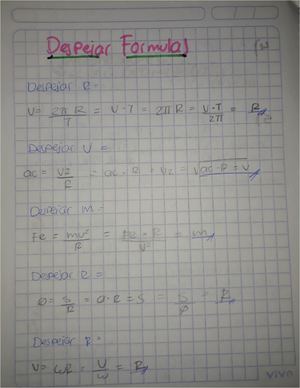 Despejar Formulas
Despejar R =
V = 2π R / T = V · T = 2π R = V · T / 2π = R
Despejar V =
ac = V² / R = ac · R = V² = √ac · R = V
Despejar m =
Fc = mv² / R = Fc · R / V² = m
Despejar R =
Φ = S / R = Φ · R = S = S / Φ = R
Despejar R =
V = ωR = V / ω = R
vivo